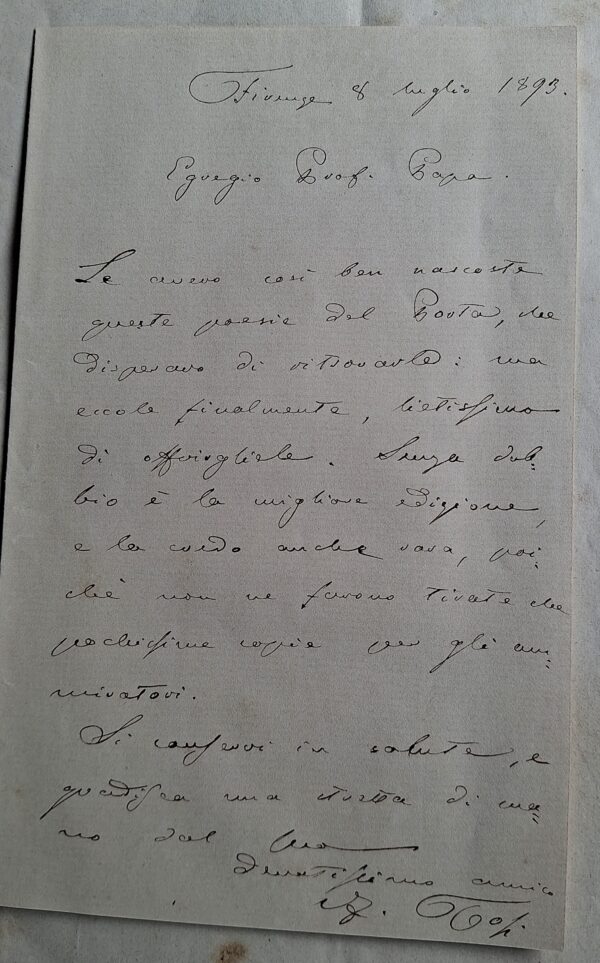 Firenze 8 luglio 1893.
Egregio Prof. Papa.
Le avevo così ben nascoste
queste poesie del Porta, che
disperavo di ritrovarle: ma
eccole finalmente, lietissimo
di offrirgliele. Senza dub=
bio è la migliore edizione,
e la credo anche rara, poi=
chè non ne furono tirate che
pochissime copie per gli am=
miratori.
Si conservi in salute, e
gradisca una stretta di ma=
no dal suo
devotissimo amico